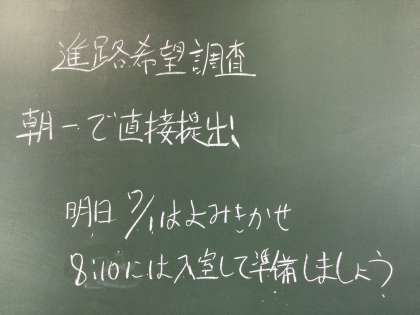 進路希望調査
朝一で直接提出!
明日 7/1はよみきかせ
8:10には入室して準備しましょう